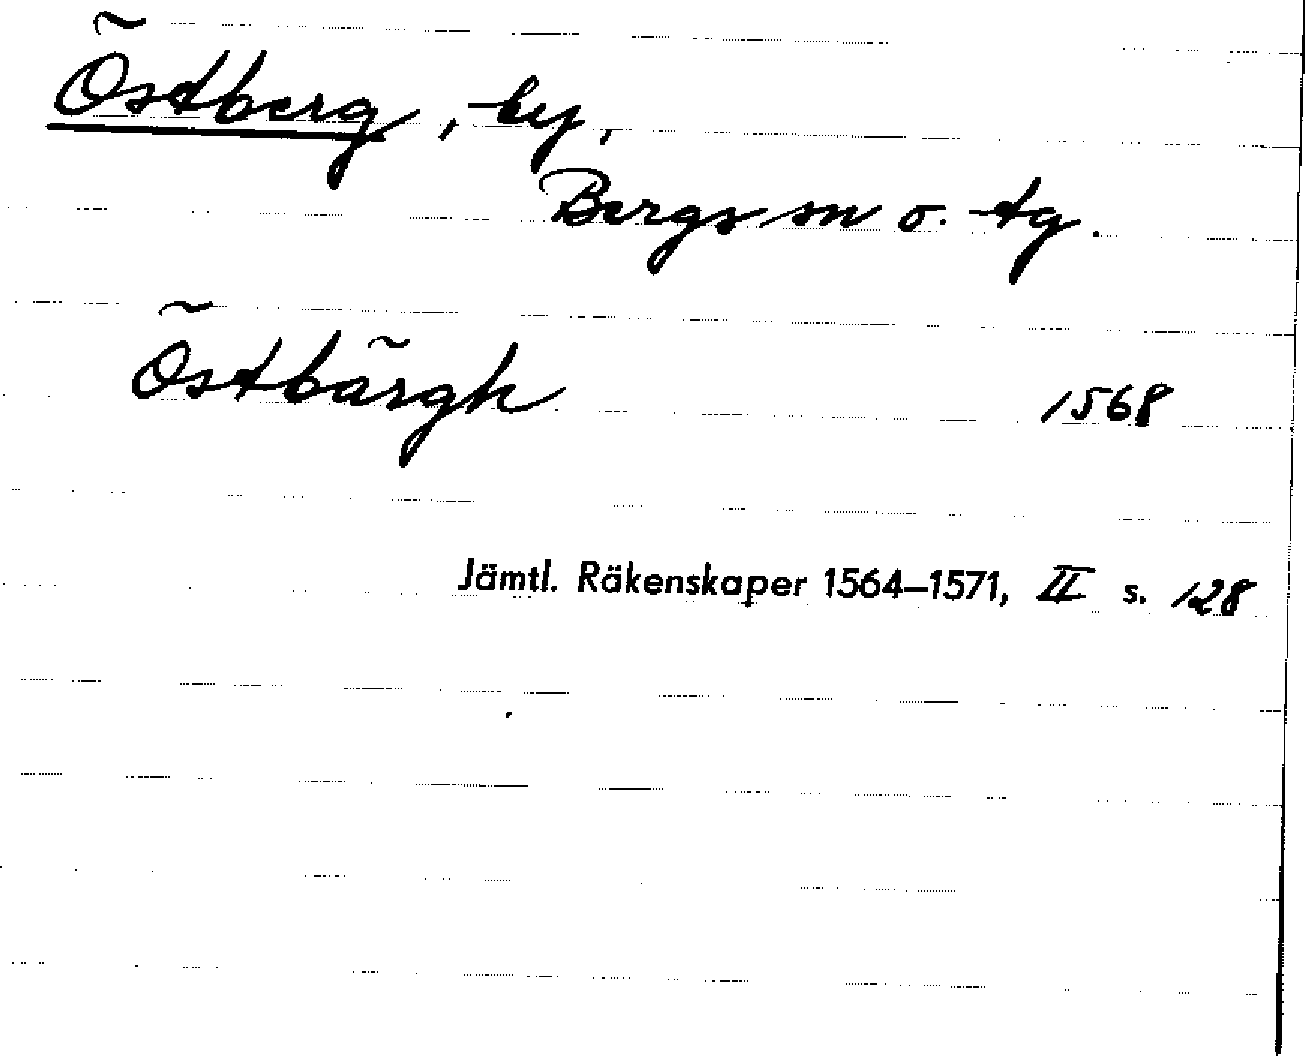 Östberg, by,
Bergs sn o. tg.
Östbärgh 1568
Jämtl. Räkenskaper 1564–1571, II s. 128